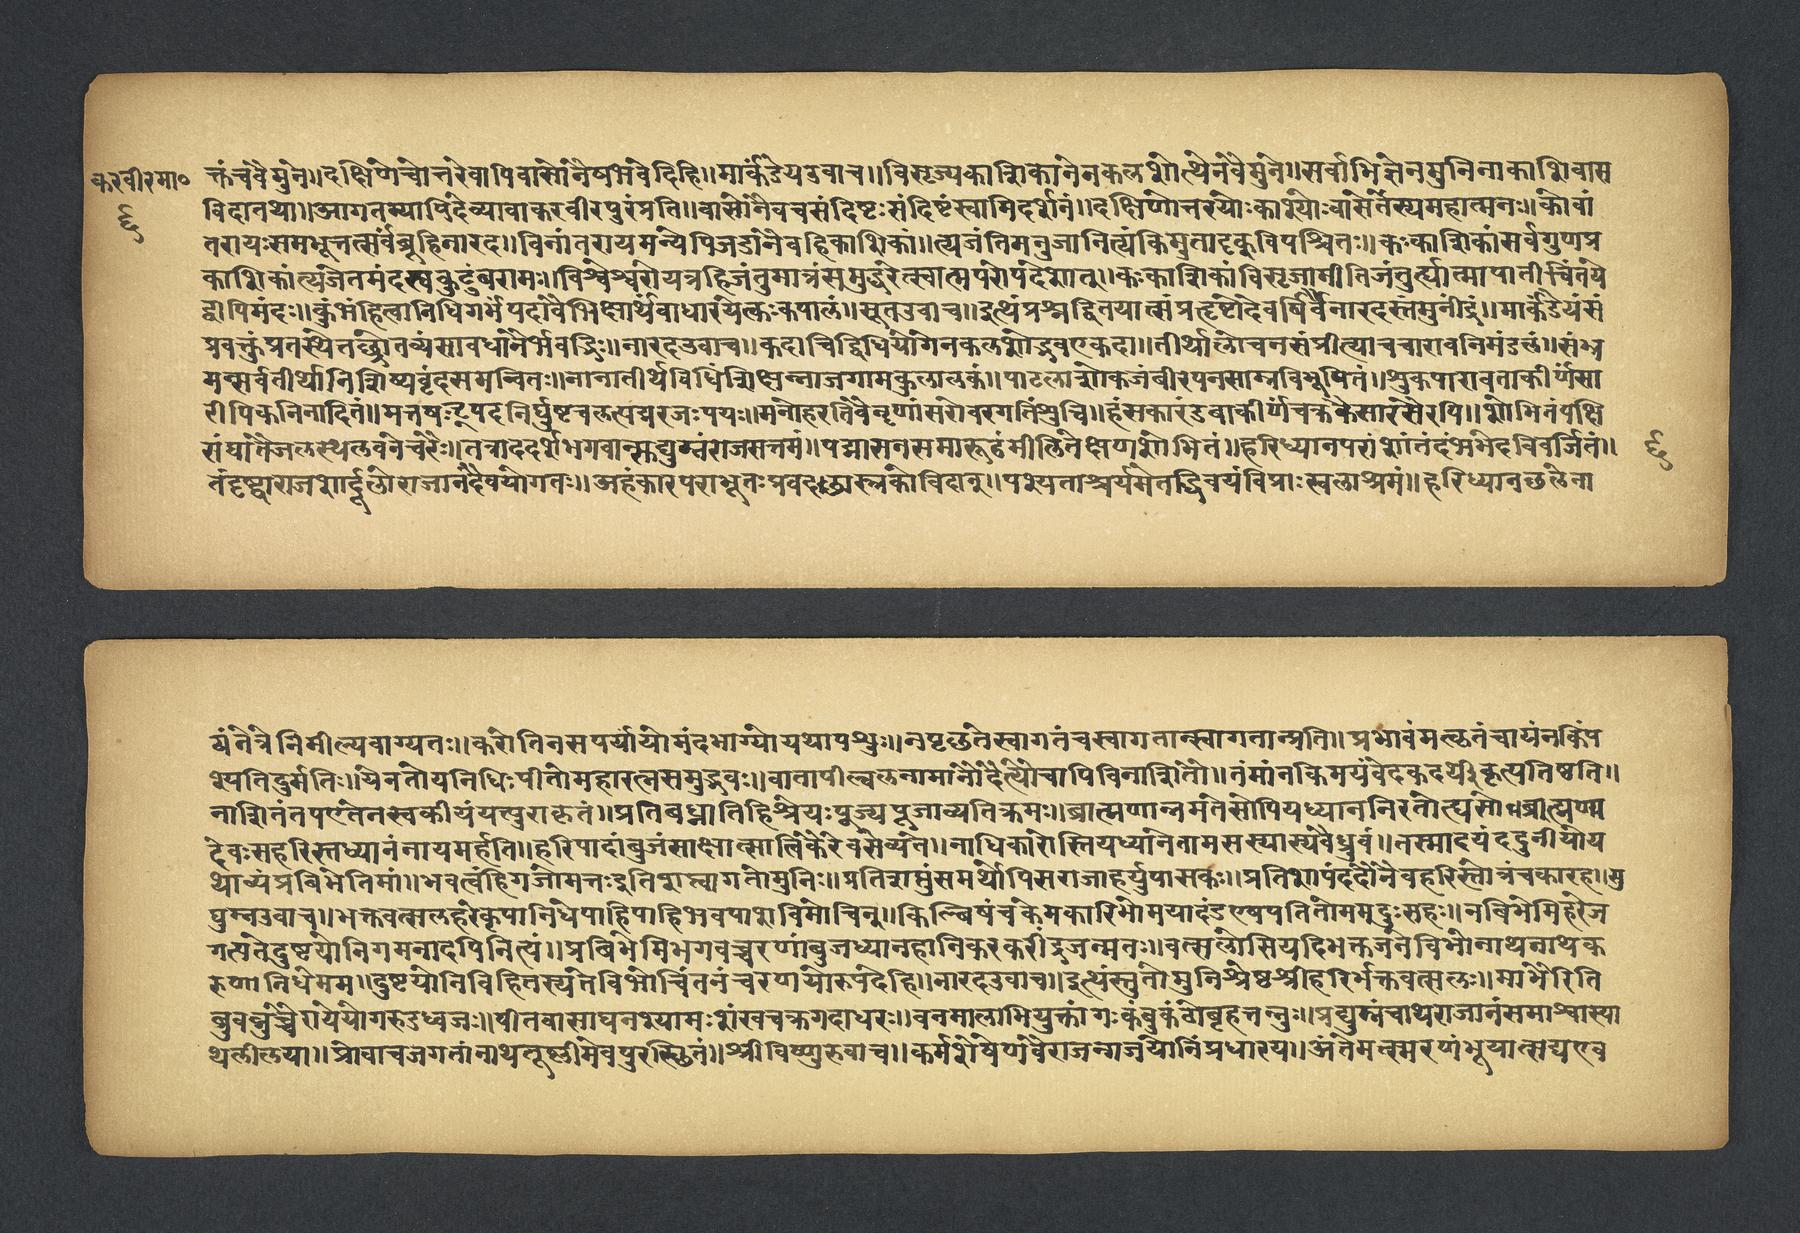 करवीरमा०
६
त्तंचवैमुने॥दक्षिणेचोत्तरेवापिवासोनैषभवेदिहि॥मार्कंडेयउवाच॥विसृज्यकाशिकानेनकलशोत्थेनवैमुने॥सर्वाभिज्ञेनमुनिनाकाशिवास
विदानथा॥आगतस्यापिदेव्यावाकरवीरपुरंप्रति॥वासोनैवचसंदिष्टःसंदिष्टंस्वामिदर्शनं॥दक्षिणोत्तरयोःकाश्योःवासेर्तेस्यमहात्मनः॥कोवां
तरायःसमभूत्तत्सर्वंब्रूहिनारद॥विनांतरायमन्येपिजडानैवहिकाशिकां॥त्यजंतिमनुजानित्यंकिमुतादृकुविपश्चितः॥कःकाशिकांसर्वगुणप्र
काशिकांत्यजेतमंदस्त्वकुटुंबरामः॥विश्वेश्वरोयत्रहिजंतुमात्रंसमुद्धरेत्स्वात्मपरोपदेशात्॥कःकाशिकांविसृजामीतिजंतुर्त्यात्मापातीचिंतये
द्वोपिमंदः॥कुंभंहित्वानिधिगर्भंपदांवैभिक्षार्थंवाधारयेत्कःकपालं॥सूतउवाच॥इत्थंप्रश्नद्वितयात्संप्रहृष्टोदेवर्षिर्वैनारदस्तंमुनींद्रं॥मार्कंडेयंसं
प्रवक्तुंप्रतस्थेतछ्रोतव्यंसावधानैर्भवद्भिः॥नारदउवाच॥कदाचिद्विधियोगेनकलशोद्भवएकदा॥तीर्थालोचनसंप्रीत्याचचारावनिमंडलं॥संभ्र
मन्सर्वतीर्थानिशिष्यवृंदसमन्वितः॥नानातीर्थविधिंशिक्षन्नाजगामकुलालकं॥पाटलाशोकजंबीरपनसाम्रविभूषितं॥शुकपारावताकीर्णंसा
रीपिकनिनादितं॥मत्तषट्पदनिर्घुष्टचलत्पद्मरजःपयः॥मनोहरतिवैनॄणांसरोवरगतिंशुचि॥हंसकारंडवाकीर्णंचक्रकैसारसैरपि॥शोभितंपक्षि
संघातैजलस्थलवनेचरैः॥तत्राददर्शभगवान्प्रद्युम्नंराजसत्तमं॥पद्मासनसमारूढंमीलितेक्षणशोभितं॥हरिध्यानपरंशांतंदंभभेदविवर्जितं॥
६
तंदृष्ट्वाराजशार्दूलोराजानंदैवयोगतः॥अहंकारपराभूतःप्रवदछास्त्रकोविदान्॥पश्यताश्चर्यमेतद्धिवयंविप्राःस्वलाश्रमं॥हरिध्यानछलेना
यंनेत्रेनिमील्यवाग्यतः॥करोतिनसपर्यांयोमंदभाग्योयथापशुः॥नपृछतेस्वागतंचस्वागतान्स्वागतान्प्रति॥प्रभावंमत्छतंचायंनकिंप
श्यतिदुर्मतिः॥येनतोयनिधिःपीतोमहारत्नसमुद्भवः॥वातापील्वलनामानौदैत्यौचापिविनाशितौ॥तंमांनकिमयंवेदकदर्थीकृत्यतिष्ठति॥
नाशितंतपएतेनस्वकीयंयत्पुराकृतं॥प्रतिबध्नातिहिश्रेयःपूज्यपूजाव्यतिक्रमः॥ब्राह्मणान्नमंतेसोपियध्याननिरतोत्यसौ॥ब्राह्मण्य
देवःसहरिस्तध्यानंनायमर्हति॥हरिपादांबुजंसाक्षात्सात्विकैरेवसेव्यते॥नाधिकारोस्तियध्यानेतामसस्यास्यवैध्रुवं॥तस्मादयंददुनीयोय
थाव्यंप्रबिभेतिमां॥भवत्वंहिगजोमत्तःइतिशप्त्वागतोमुनिः॥प्रतिशप्तुंसमर्थोपिसराजाहर्युपासकः॥प्रतिशापंददौनैवहरिस्तोत्रंचकारह॥सु
प्रद्युम्नउवाच॥भक्तवत्सलहरेकृपानिधेपाहिपाहिभवपाशविमोचिन्॥किल्बिषंचकेमकारिभोमयादंडएषपतितोममदुःसहः॥नबिभेमिहरेज
गत्पतेदुष्टयोनिगमनादपिनित्यं॥प्रबिभेमिभगवच्चरणांबुजध्यानहानिकरकरींद्रजन्मनः॥वत्सलोसियदिभक्तजनेविभोनाथनाथक
रुणानिधेमम॥दुष्टयोनिविहितस्यतेविभोचिंतनंचरणयोरुपदेहि॥नारदउवाच॥इत्थंस्तुतोमुनिश्रेष्ठश्रीहरिर्भक्तवत्सलः॥माभैरिति
ब्रुवन्नुच्चैरायेयोगरुडध्वजः॥पीतवासाघनश्यामःशंखचक्रगदाधरः॥वनमालाभियुक्तांगःकंबुकंठोबृहत्तनुः॥प्रद्युम्नंचाथराजानंसमाश्वास्या
थलीलया॥प्रोवाचजगतांनाथस्तूष्णीमेवपुरस्छितं॥श्रीविष्णुरुवाच॥कर्मशेषेणवैराजन्गजयोनिंप्रधारय॥अंतेमत्स्मरणंभूयात्सद्यएव